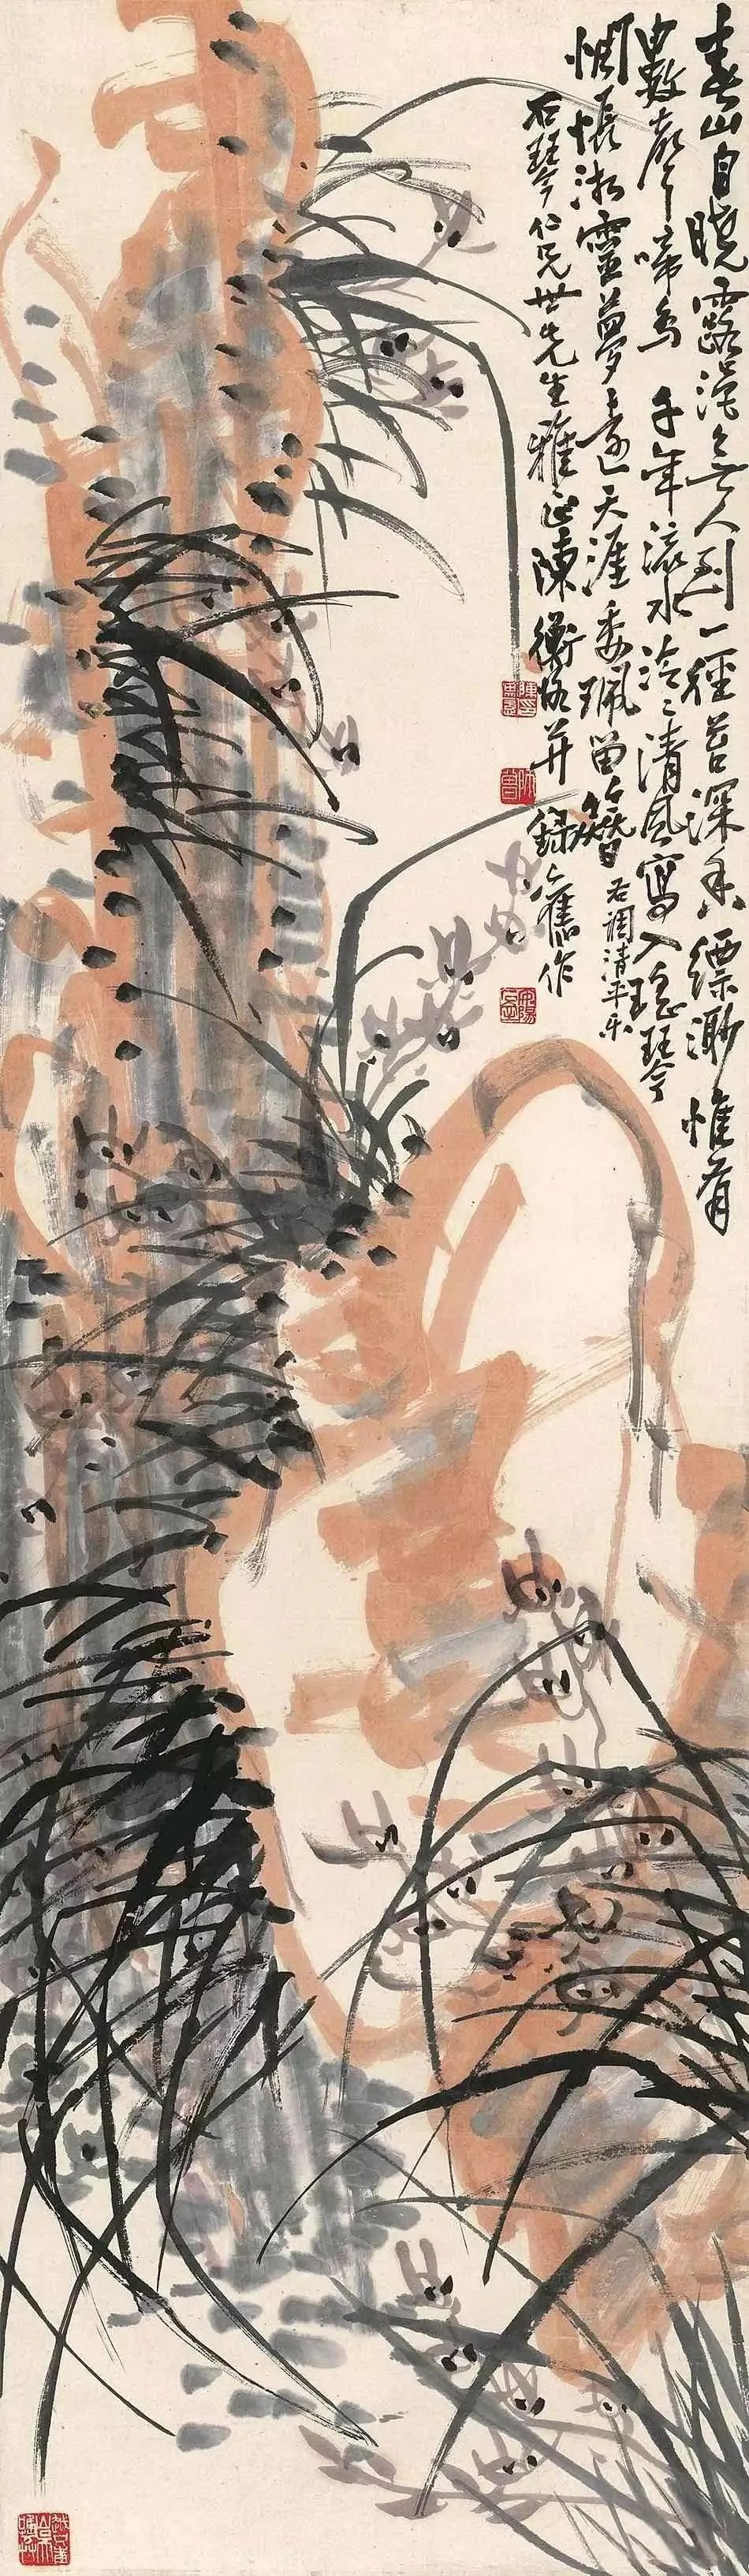 春山自曉露泥之無人到一徑苔深香縹渺惟有
幽數聲啼鳥 千年流水泠泠清風寫入瑤琴
惆悵湘靈夢遠天涯委珮留簪
右調清平乐
石琴仁兄世先生雅正陳衡恪并錄舊作